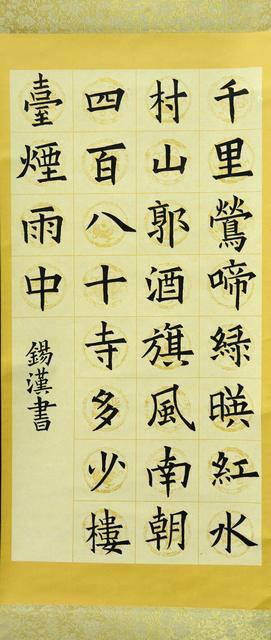 千里鶯啼綠暎紅水
村山郭酒旗風南朝
四百八十寺多少樓
臺煙雨中
錫漢書